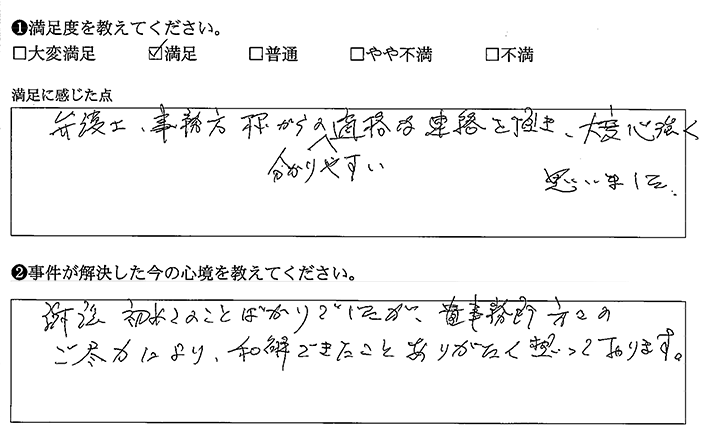 ❶満足度を教えてください。
□大変満足 ☑満足 □普通 □やや不満 □不満
満足に感じた点
弁護士、事務方様からの適格な連絡を頂き、大変心強く
分かりやすい
思いました。
❷事件が解決した今の心境を教えてください。
初めてのことばかりでしたが、貴事務所方々の
ご尽力により、和解できたことありがたく思っております。